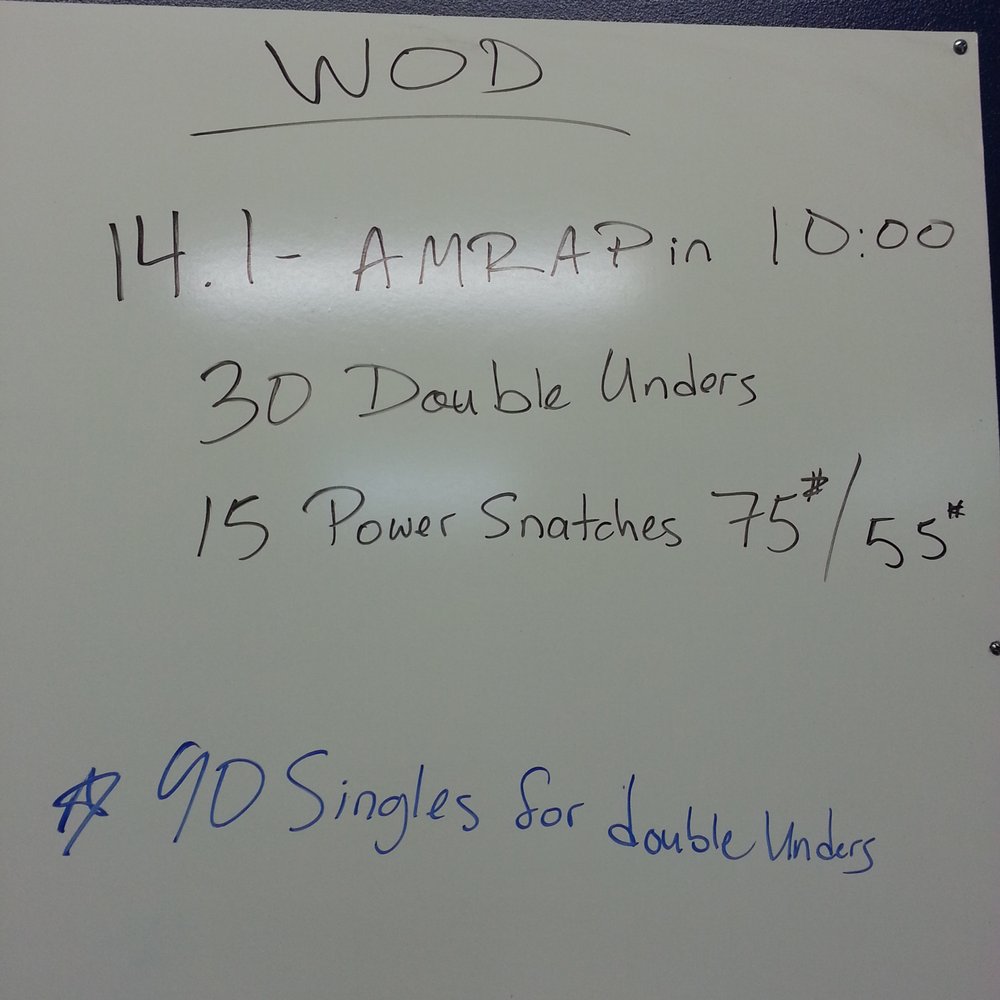 WOD
14.1- AMRAP in 10:00
30 Double Unders
15 Power Snatches 75#/55#
☆ 90 Singles for double Unders